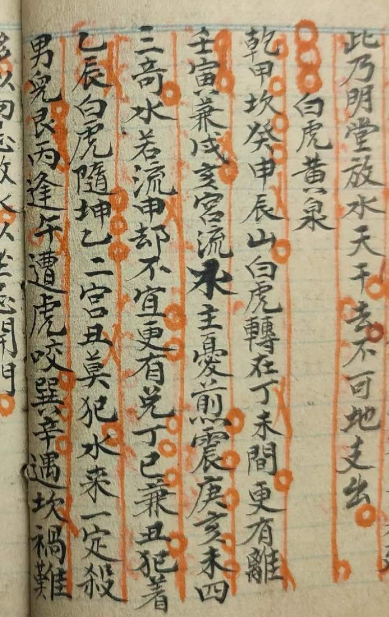 此乃明堂放水天干去不可地支出
白虎黃泉
乾甲坎癸申辰山白虎轉在丁未間更有離
壬寅兼戌亥宮流水主憂煎震庚亥未四
三奇水若流申却不宜更有兌丁巳兼丑犯着
乙辰白虎隨坤乙二宮丑莫犯水来一定殺
男兒艮丙逢午遭虎咬巽辛遇坎禍難